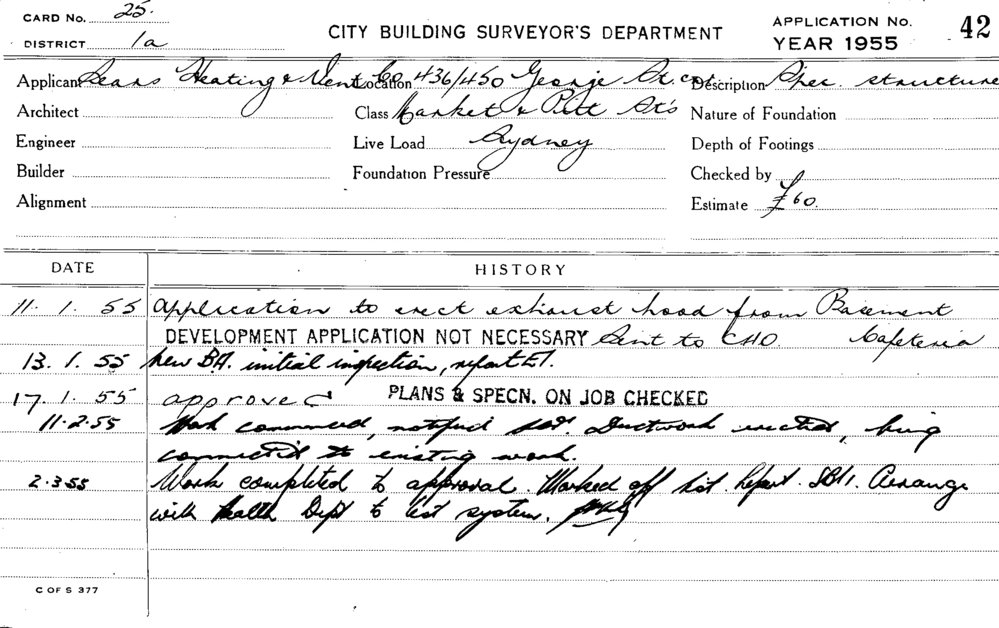 CARD No. 25.
DISTRICT 1a
CITY BUILDING SURVEYOR'S DEPARTMENT
APPLICATION No. 42
YEAR 1955
Applicant Sears Heating & Vent Co Location 436/450 George St. cnr Description Spec. structure
Architect Class Market & Pitt Sts Nature of Foundation
Engineer Live Load Sydney Depth of Footings
Builder Foundation Pressure Checked by
Alignment Estimate £60.
DATE HISTORY
11. 1. 55 Application to erect exhaust hood from Basement
DEVELOPMENT APPLICATION NOT NECESSARY Sent to CHO Cafeteria
13. 1. 55 New B.A. initial inspection, report E1.
17. 1. 55 approved PLANS & SPECN. ON JOB CHECKED
11.2.55 Work commenced, notified Ductwork erected, being
connected to existing work.
2.3.55 Work completed to approval. Marked off list. Report. Arrange
with Health Dept to test system.
C OF S 377